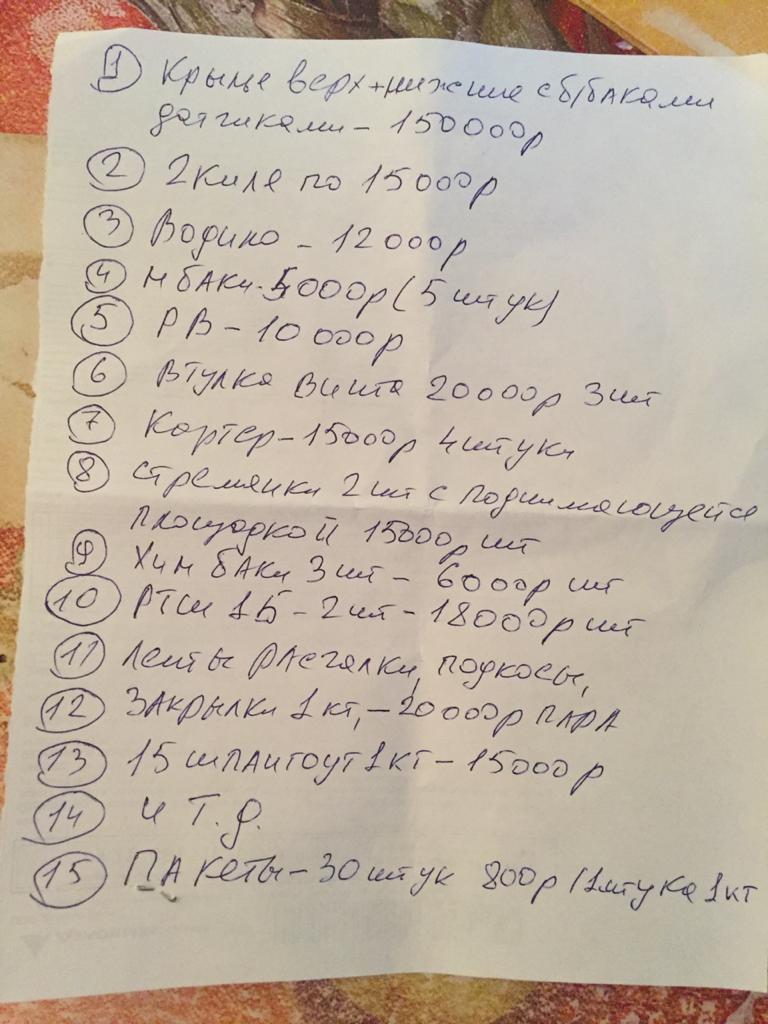 1 Крылье верх+нижние с б/баками
датчиками - 150000р
2 2 киля по 15000р
3 Водило - 12000р
4 М баки - 5000р (5 штук)
5 РВ - 10000р
6 Втулка винта 20000р 3шт
7 Картер - 15000р 4штуки
8 стремянки 2шт с поднимающейся
площадкой 15000р шт
9 Хим баки 3шт - 6000р шт
10 РТСИ 1Б - 2шт - 18000р шт
11 ленты расчалки, подкосы,
12 Закрылки 1кт, - 20000р ПАРА
13 15 шпангоут 1кт - 15000р
14 и т.д.
15 ПАкеты - 30штук 800р/1штука 1кт